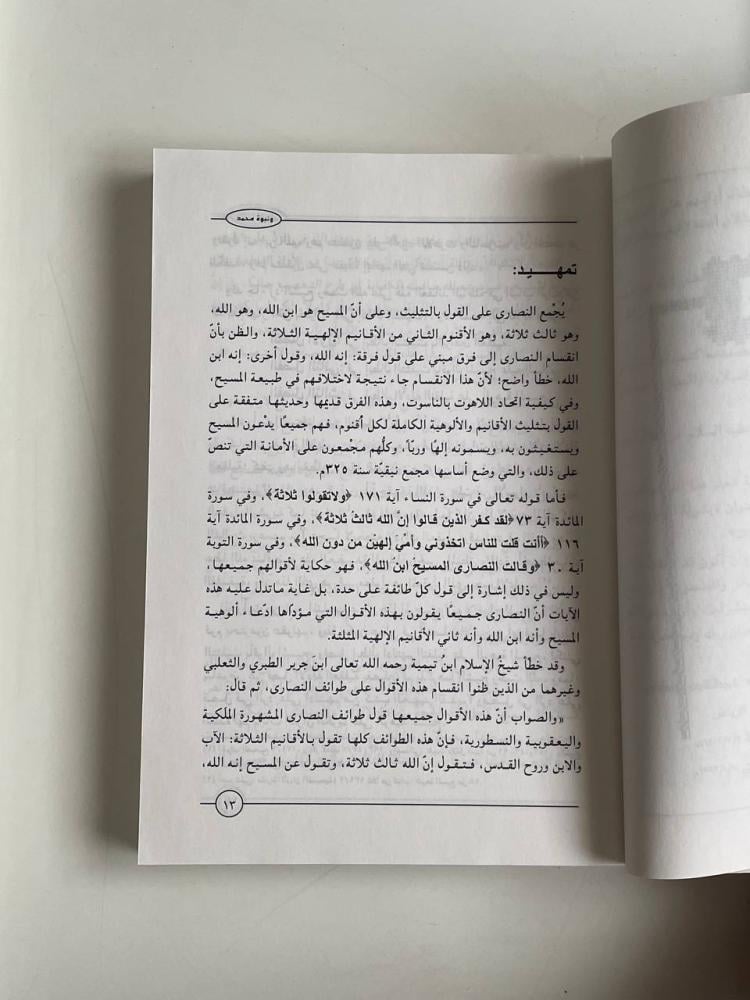 ونبوة محمد
تمهـــــيد:
يُجْمع النصارى على القول بالتثليث، وعلى أنّ المسيح هو ابن الله، وهو الله،
وهو ثالث ثلاثة، وهو الأقنوم الثاني من الأقانيم الإلهية الثلاثة، والظن بأنّ
انقسام النصارى إلى فرق مبني على قول فرقة: إنه الله، وقول أخرى: إنه ابن
الله، خطأ واضح؛ لأنّ هذا الانقسام جاء نتيجة لاختلافهم في طبيعة المسيح،
وفي كيفية اتحاد اللاهوت بالناسوت، وهذه الفرق قديمها وحديثها متفقة على
القول بتثليث الأقانيم والألوهية الكاملة لكل أقنوم، فهم جميعًا يدْعون المسيح
ويستغيثون به، ويسمونه إلهًا وربّاً، وكلُّهم مجْمعون على الأمانة التي تنصّ
على ذلك، والتي وضع أساسها مجمع نيقيّة سنة ٣٢٥م.
فأما قوله تعالى في سورة النساء آية ١٧١ ﴿ولاتقولوا ثلاثة﴾، وفي سورة
المائدة آية ٧٣ ﴿لقد كفر الذين قالوا إنَّ الله ثالثُ ثلاثة﴾، وفي سورة المائدة آية
١١٦ ﴿أأنت قلت للناس اتخذوني وأمّيَ إلهيْن من دون الله﴾، وفي سورة التوبة
آية ٣٠ ﴿وقالت النصارى المسيحُ ابنُ الله﴾، فهو حكاية لأقوالهم جميعـها،
وليس في ذلك إشارة إلى قول كلّ طائفة على حدة، بل غاية ماتدل عليه هذه
الآيات أنّ النصارى جميعًا يقولون بهذه الأقوال التي مؤدّاها ادّعاء ألوهية
المسيح وأنه ابن الله وأنه ثاني الأقانيم الإلهية المثلثة.
وقد خطأ شيخُ الإسلام ابنُ تيمية رحمه الله تعالى ابنَ جرير الطبري والثعلبي
وغيرهما من الذين ظنوا انقسام هذه الأقوال على طوائف النصارى، ثم قال:
«والصواب أنّ هذه الأقوال جميعها قول طوائف النصارى المشهورة الملكية
واليعقوبية والنسطورية، فإنّ هذه الطوائف كلها تقول بالأقانيم الثلاثة: الآب
والابن وروح القدس، فتقول إنّ الله ثالث ثلاثة، وتقول عن المسيح إنه الله،
١٣